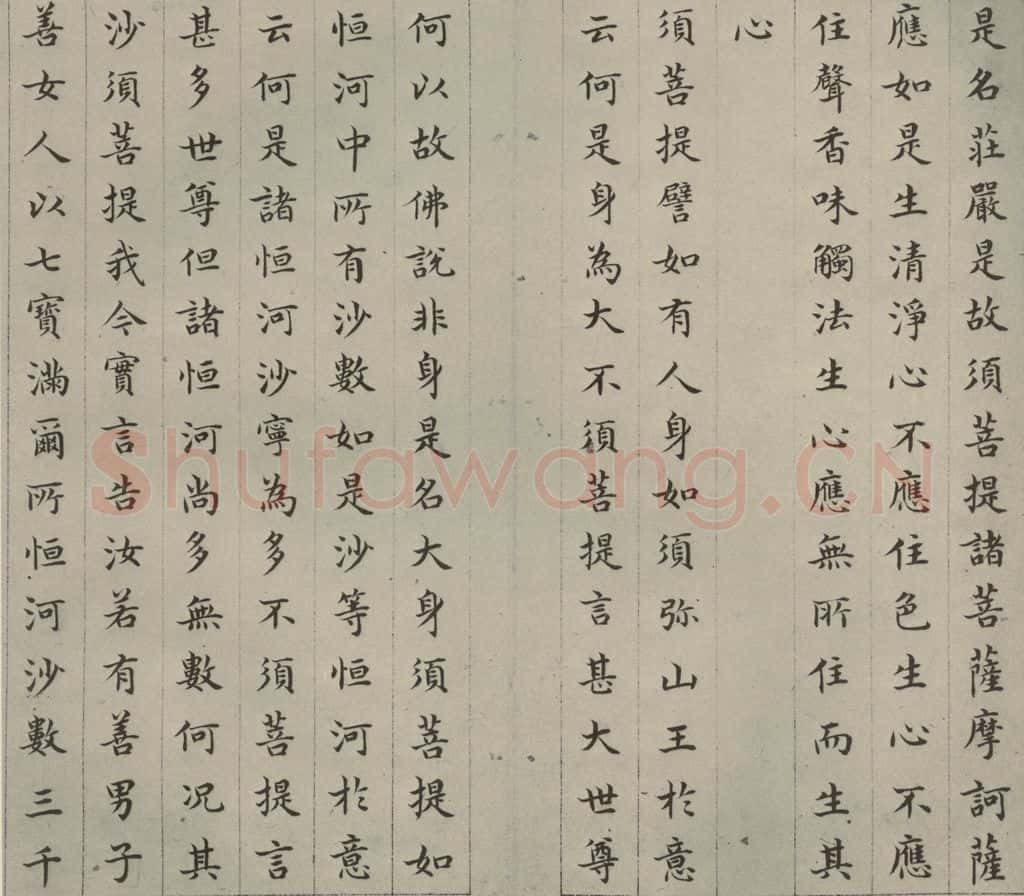 是名莊嚴是故須菩提諸菩薩摩訶薩
應如是生清淨心不應住色生心不應
住聲香味觸法生心應無所住而生其
心
須菩提譬如有人身如須弥山王於意
云何是身為大不須菩提言甚大世尊
何以故佛說非身是名大身須菩提如
恒河中所有沙數如是沙等恒河於意
云何是諸恒河沙寧為多不須菩提言
甚多世尊但諸恒河尚多無數何况其
沙須菩提我今實言告汝若有善男子
善女人以七寶滿爾所恒河沙數三千
Shufawang.CN